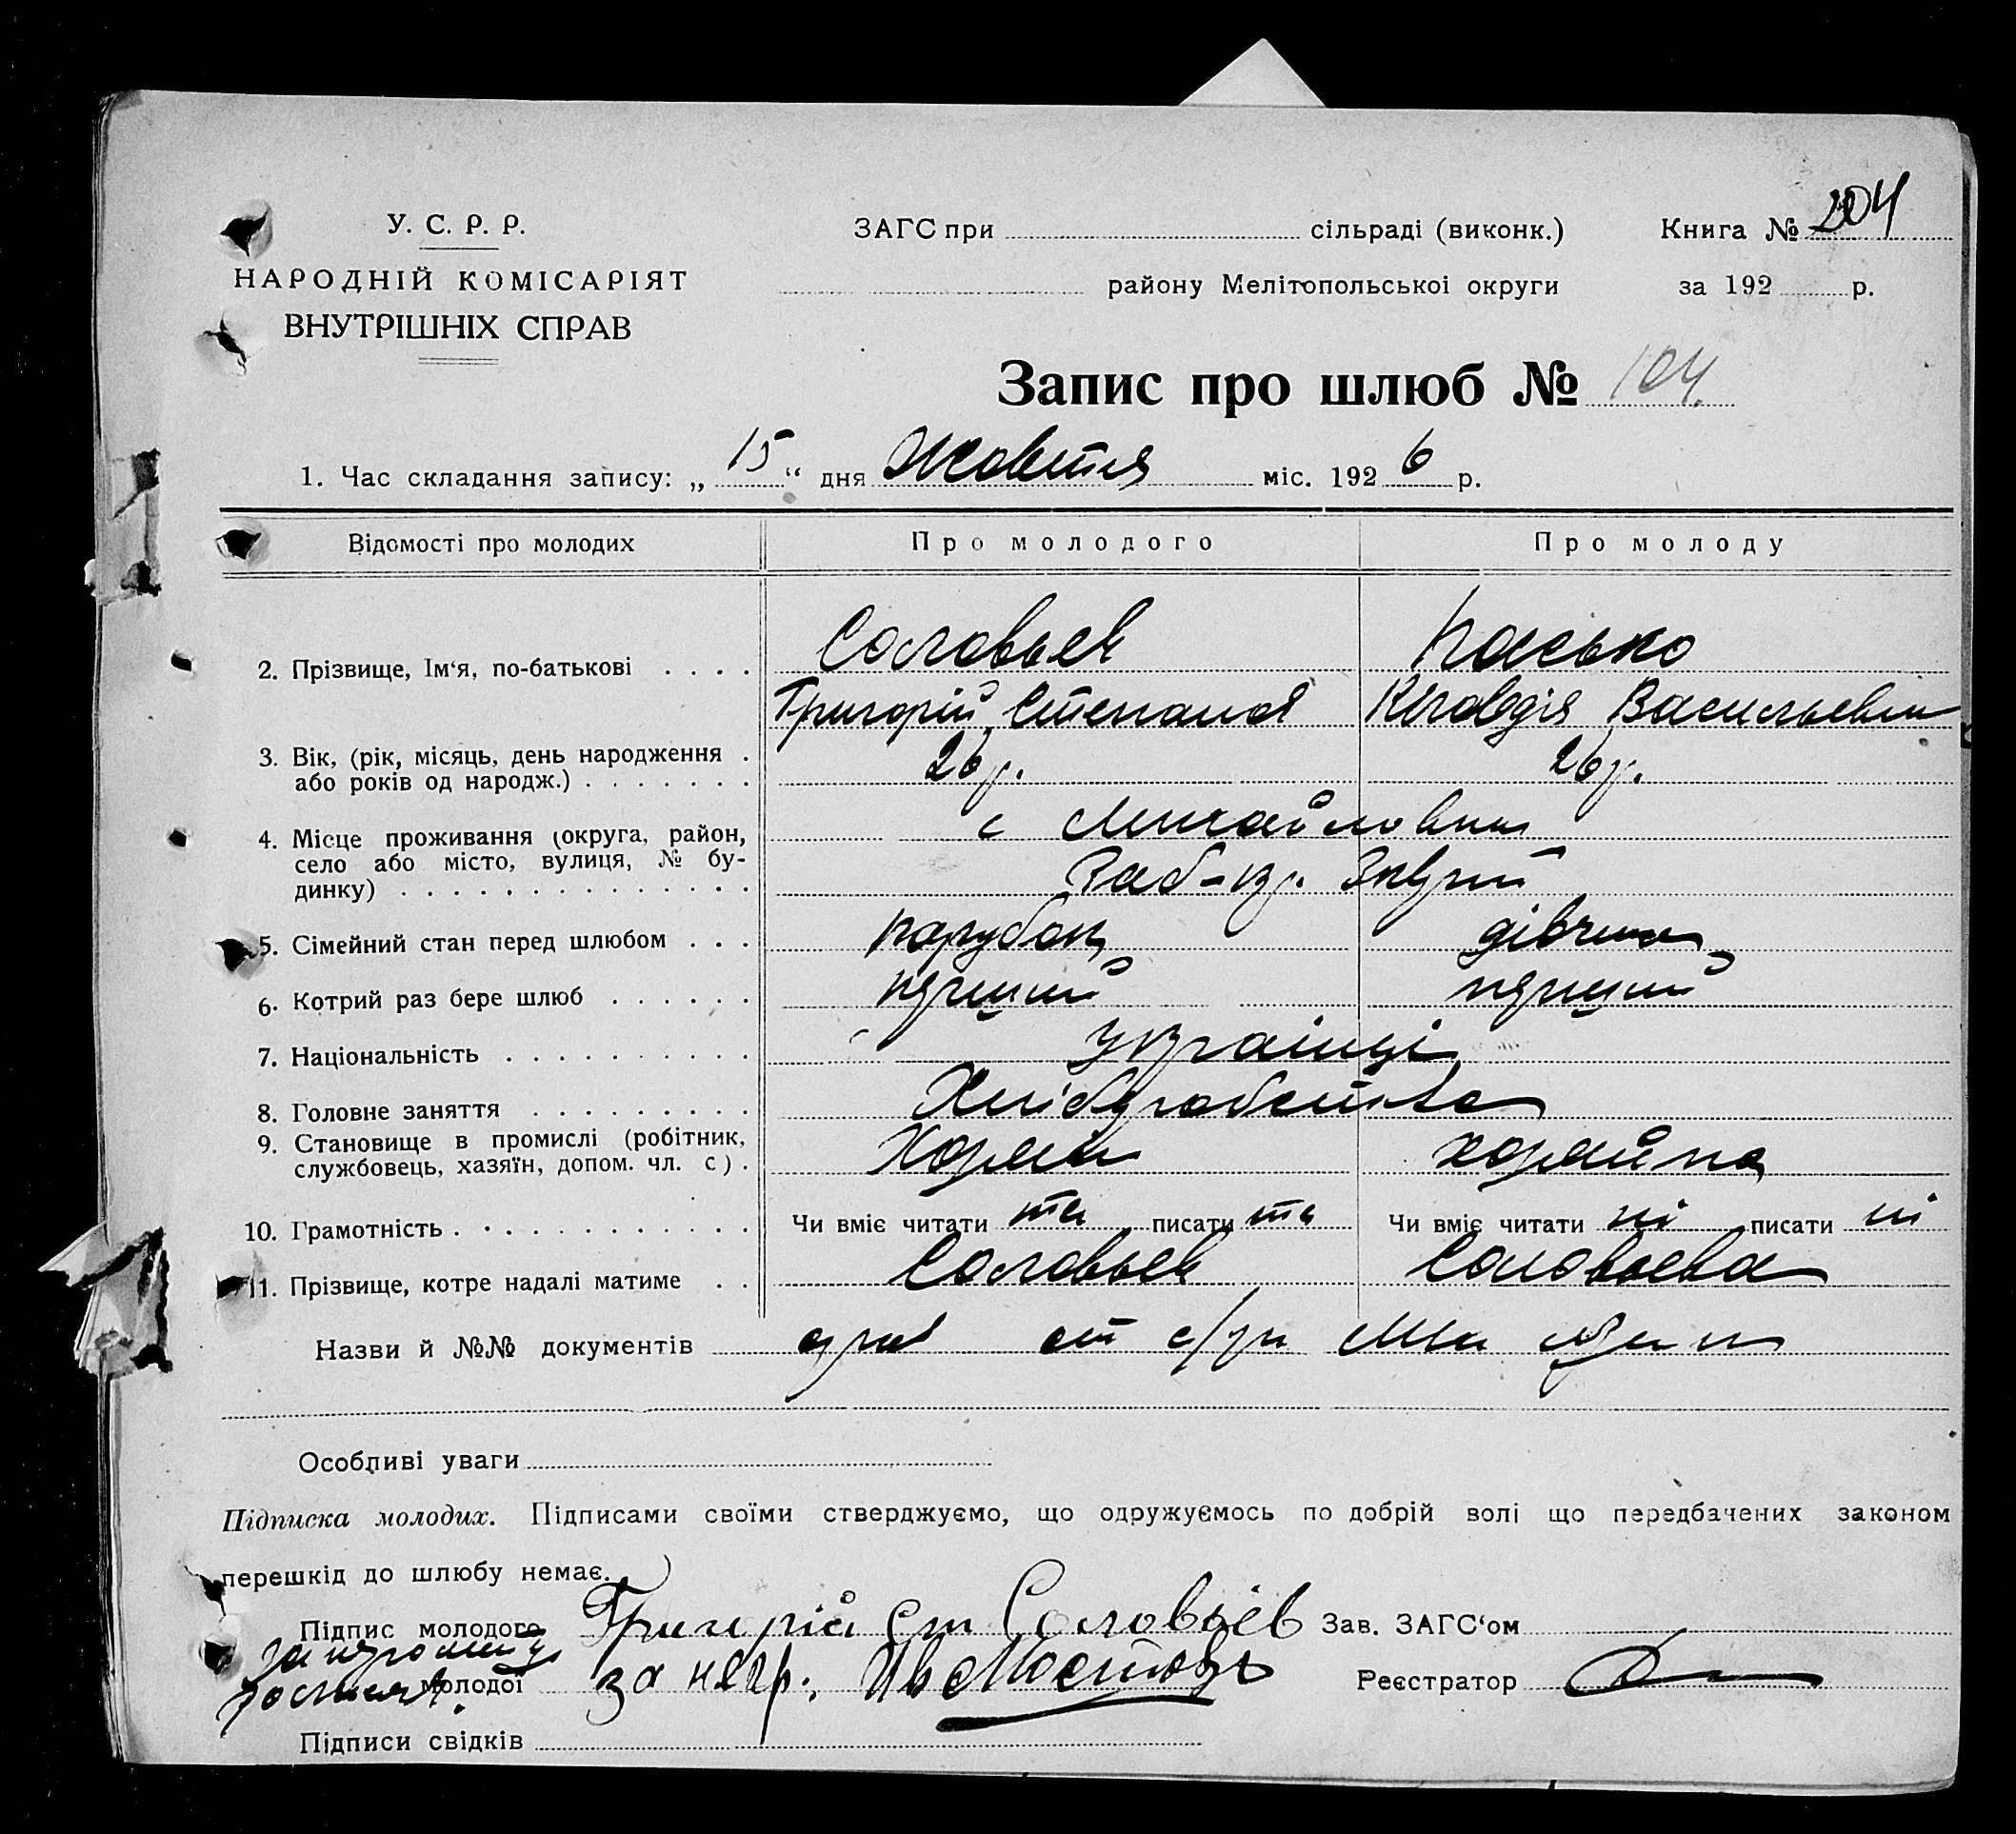 У. С. Р. Р.
НАРОДНІЙ КОМІСАРІЯТ
ВНУТРІШНІХ СПРАВ
ЗАГС при сільраді (виконк.)
району Мелітопольської округи
Книга № 204
за 192 р.
Запис про шлюб № 104.
1. Час складання запису: „15“ дня Жовтня міс. 1926 р.
Відомості про молодих Про молодого Про молоду
Соловьев Касько
2. Прізвище, Ім‘я, по-батькові . . . .
Григорій Степанов Клавдія Васильевна
3. Вік, (рік, місяць, день народження . 26 р. 26 р.
або років од народж.) . . . . . . .
4. Місце проживання (округа, район, с Михайловка
село або місто, вулиця, № бу-
динку) . . . . . . . . . . . . . .
5. Сімейний стан перед шлюбом . . . парубок дівчина
6. Котрий раз бере шлюб . . . . . . перший перший
7. Національність . . . . . . . . . . українці
8. Головне заняття . . . . . . . . . Хліборобство
9. Становище в промислі (робітник,
службовець, хазяїн, допом. чл. с) .
10. Грамотність . . . . . . . . . . . . Чи вміє читати та писати та Чи вміє читати ні писати ні
11. Прізвище, котре надалі матиме . . Соловьев Соловьева
Назви й №№ документів
Особливі уваги
Підписка молодих. Підписами своїми стверджуємо, що одружуємось по добрій волі що передбачених законом
перешкід до шлюбу немає.
Підпис молодого Григорій Ст Соловьёв Зав. ЗАГС‘ом
молодої за негр. Ив Реєстратор
Підписи свідків